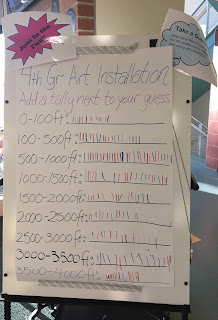 Join in the
Fun!
Take a G
4th Gr Art Installation
Add a tally next to your guess
0-100ft:
100-500ft:
500-1000ft:
1000-1500ft:
1500-2000ft:
2000-2500ft:
2500-3000ft:
3000-3500ft:
3500-4000ft: